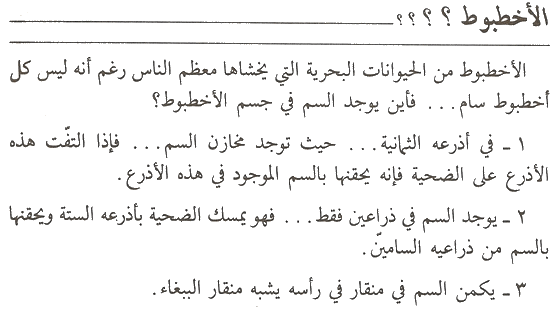 الأخطبوط ؟ ؟ ؟ ؟
الأخطبوط من الحيوانات البحرية التي يخشاها معظم الناس رغم أنه ليس كل
أخطبوط سام... فأين يوجد السم في جسم الأخطبوط؟
١ ـ في أذرعه الثمانية... حيث توجد مخازن السم... فإذا التفّت هذه
الأذرع على الضحية فإنه يحقنها بالسم الموجود في هذه الأذرع.
٢ ـ يوجد السم في ذراعين فقط... فهو يمسك الضحية بأذرعه الستة ويحقنها
بالسم من ذراعيه السامينّ.
٣ ـ يكمن السم في منقار في رأسه يشبه منقار الببغاء.